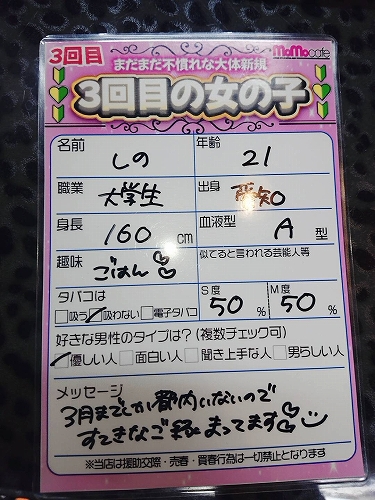 3回目
まだまだ不慣れな大体新規
MoMocafe
3回目の女の子
名前 しの 年齢 21
職業 大学生 出身 愛知
身長 160 cm 血液型 A 型
趣味 ごはん 似てると言われる芸能人等
タバコは S度 M度
□吸う ☑吸わない □電子タバコ 50 % 50 %
好きな男性のタイプは?(複数チェック可)
☑優しい人 □面白い人 □聞き上手な人 □男らしい人
メッセージ
3月までしか都内いないので
すてきなご縁まってます
※当店は援助交際・売春・買春行為は一切禁止となります